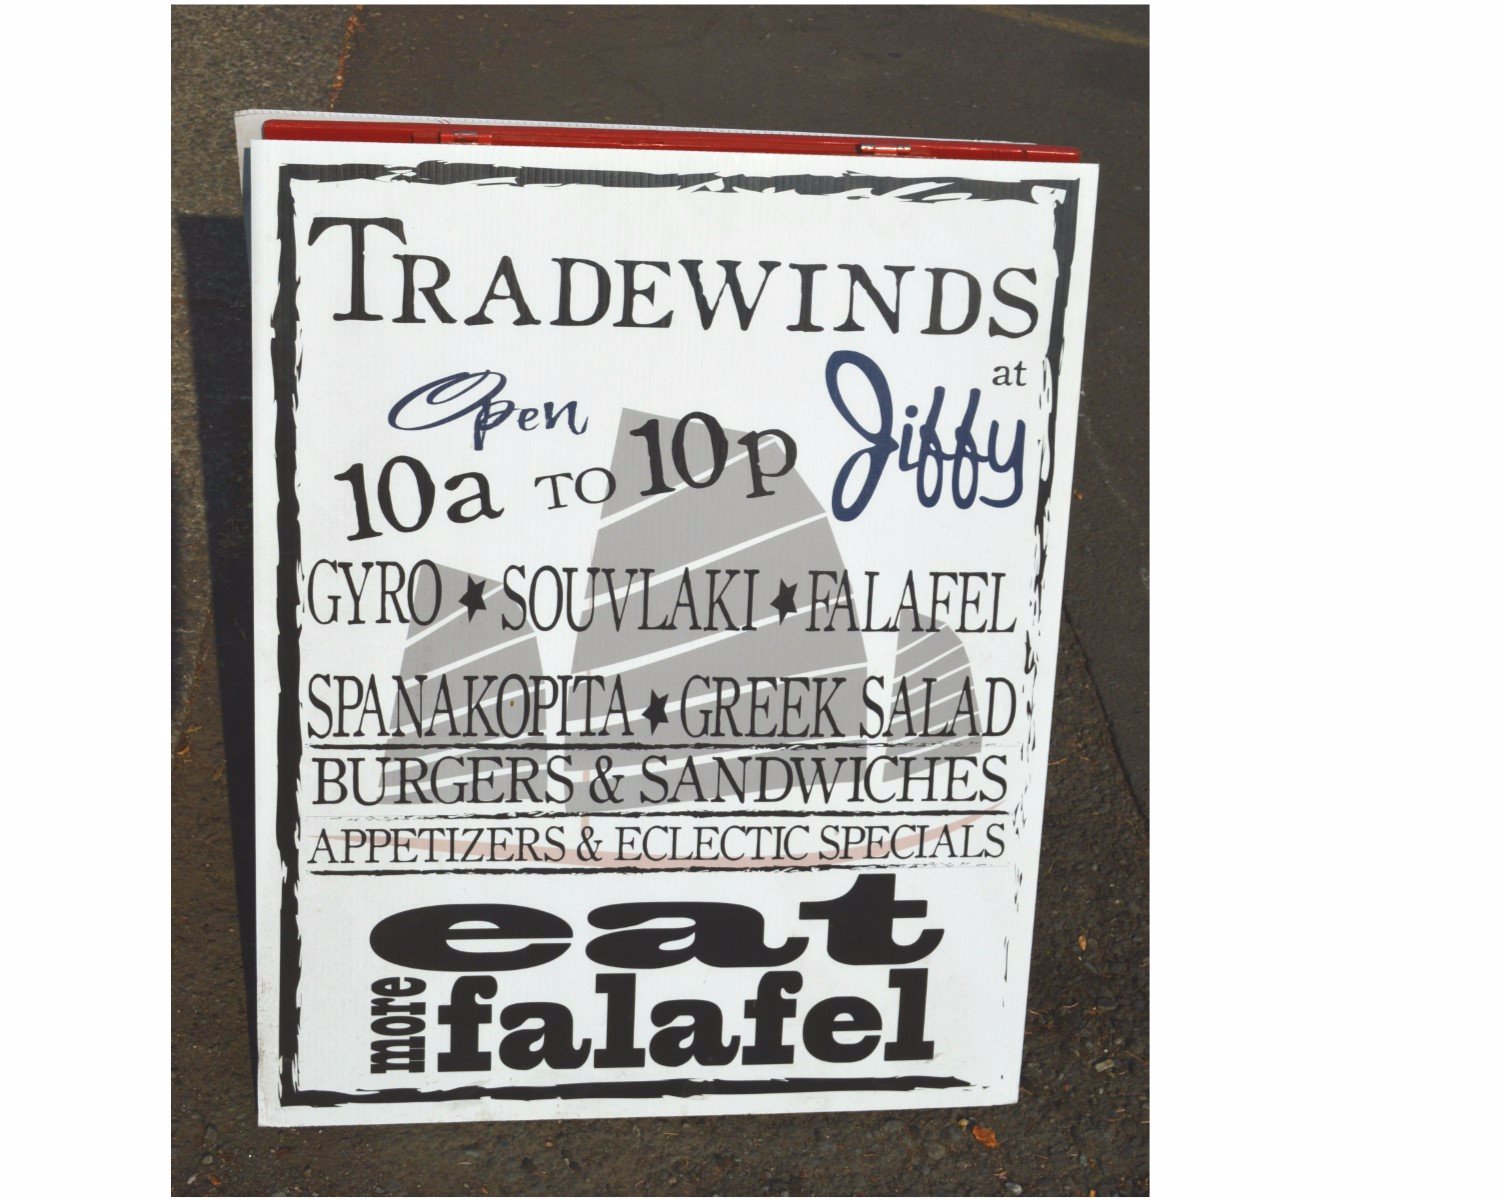 TRADEWINDS
at Jiffy
Open
10a TO 10p
GYRO ★ SOUVLAKI ★ FALAFEL
SPANAKOPITA ★ GREEK SALAD
BURGERS & SANDWICHES
APPETIZERS & ECLECTIC SPECIALS
eat
more falafel